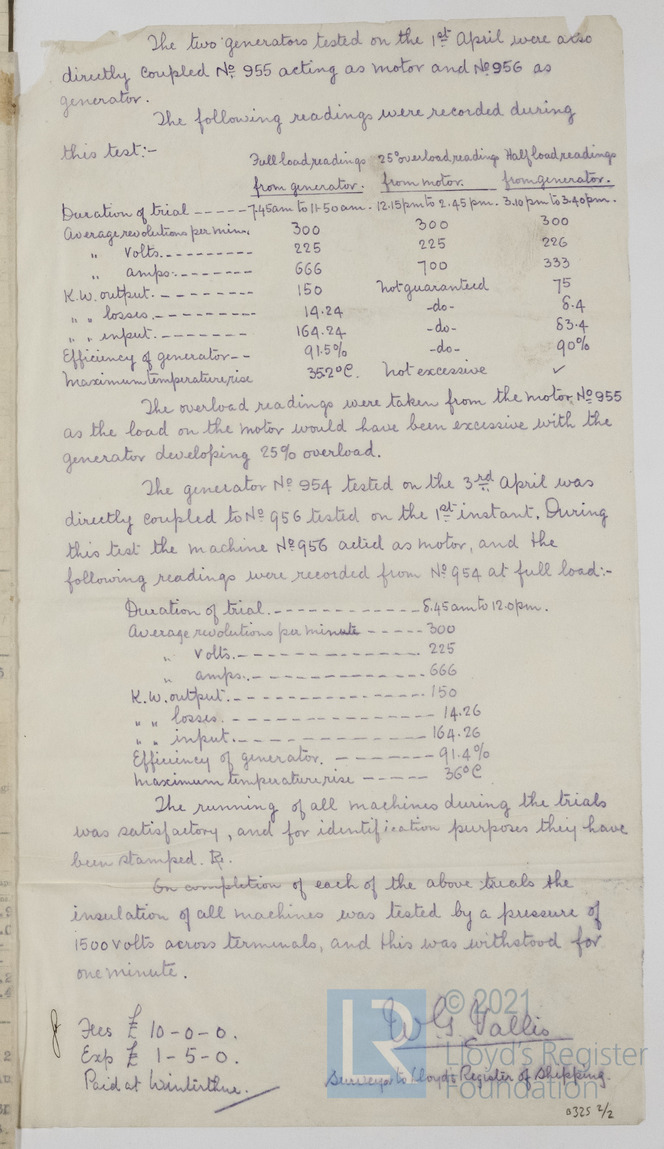 The two generators tested on the 1st April were also
directly coupled No 955 acting as motor and No 956 as
generator.
The following readings were recorded during
this test:-
Full load readings 25% overload readings Half load readings
from generator. from motor. from generator.
Duration of trial ----- 7.45am to 11.50am. 12.15pm to 2.45pm. 3.10pm to 3.40pm.
Average revolutions per min. 300 300 300
" Volts. --------- 225 225 226
" amps. -------- 666 700 333
K.W. output. -------- 150 not guaranteed 75
" " losses. -------- 14.24 -do- 8.4
" " input. -------- 164.24 -do- 83.4
Efficiency of generator -- 91.5% -do- 90%
Maximum temperature rise 35.2°C. not excessive ✓
The overload readings were taken from the motor No 955
as the load on the motor would have been excessive with the
generator developing 25% overload.
The generator No 954 tested on the 3rd April was
directly coupled to No 956 tested on the 1st instant. During
this test the machine No 956 acted as motor, and the
following readings were recorded from No 954 at full load:-
Duration of trial. ------------- 8.45am to 12.0pm.
Average revolutions per minute ----- 300
" Volts. --------------- 225
" amps. --------------- 666
K.W. output. --------------- 150
" " losses. --------------- 14.26
" " input. --------------- 164.26
Efficiency of generator. ------- 91.4%
Maximum temperature rise ----- 36°C
The running of all machines during the trials
was satisfactory, and for identification purposes they have
been stamped.
On completion of each of the above trials the
insulation of all machines was tested by a pressure of
1500 volts across terminals, and this was withstood for
one minute.
Fees £ 10-0-0.
Exp £ 1-5-0.
Paid at Winterthur.
W.G. Vallis
Surveyor to Lloyd's Register of Shipping.
LR
© 2021
Lloyd's Register
Foundation
0325 2/2